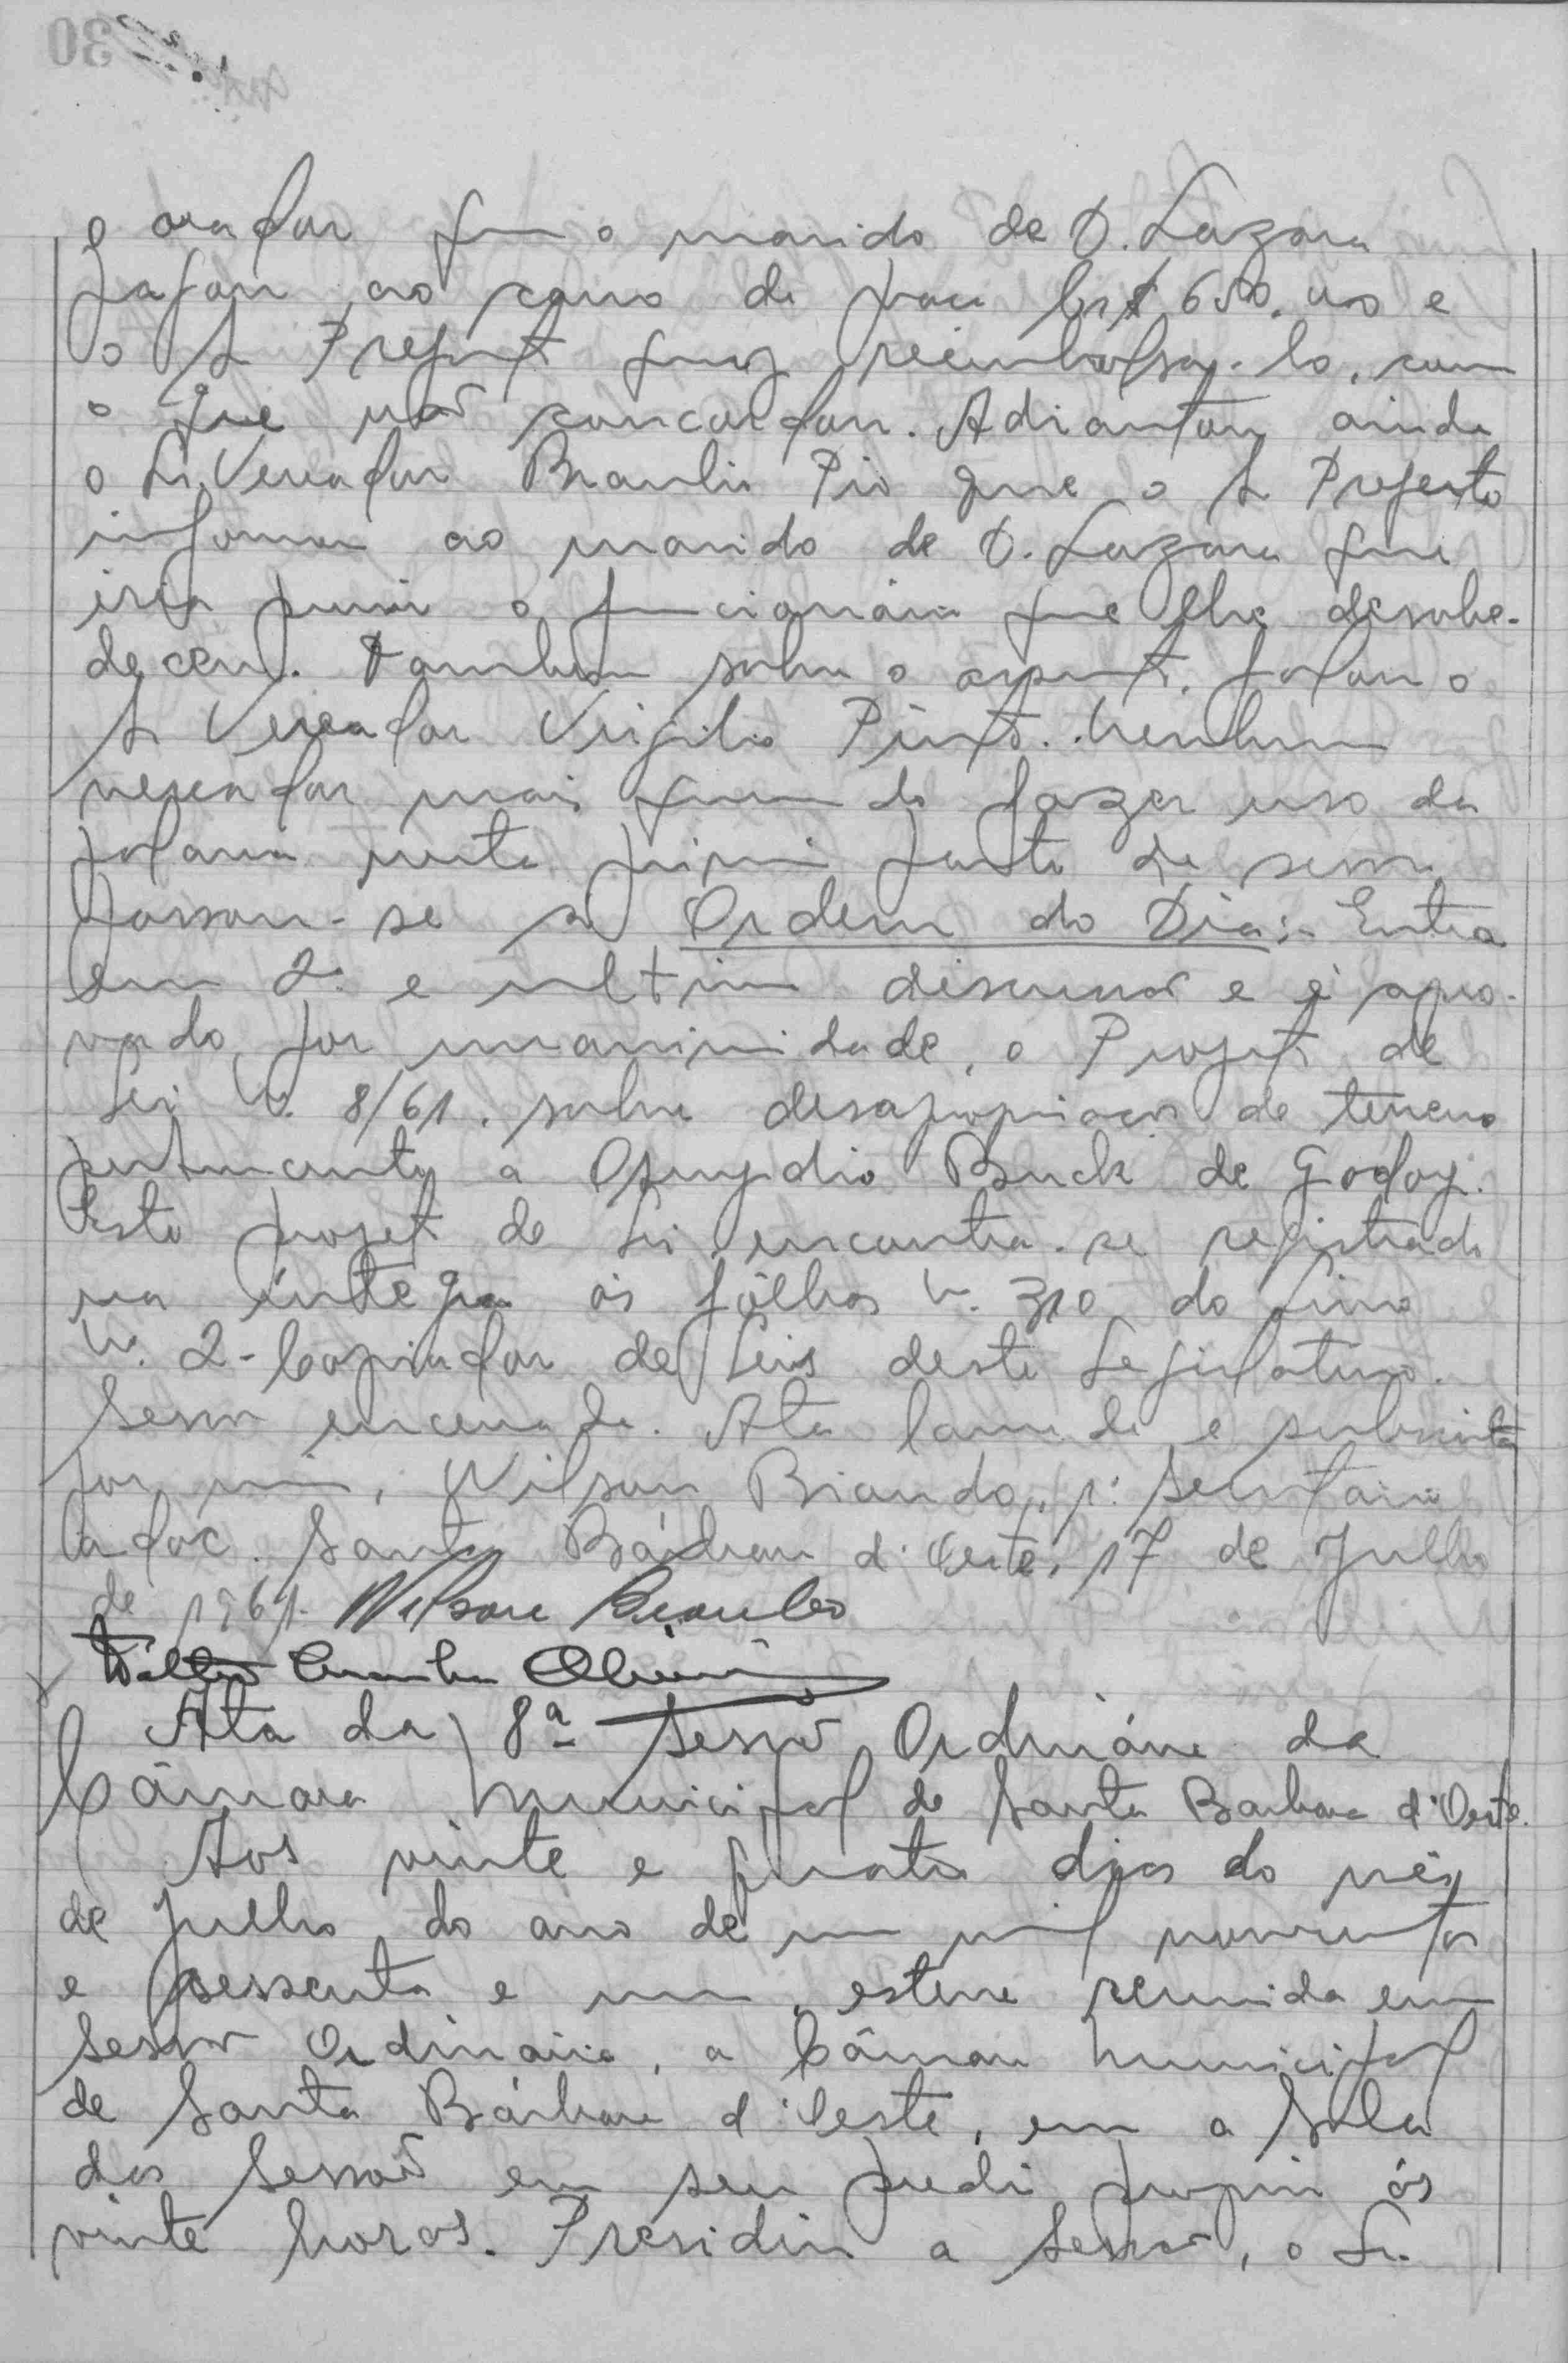 o orador que o marido de D. Lazara
pagou ao carro de praça Cr$ 650,00 e
o Sr Prefeito quiz reembolsa-lo, com
o que não concordou. Adiantou ainda
o Sr. Vereador Braulio Pio que o Sr Prefeito
informou ao marido de D. Lazara que
iria punir o funcionário que lhe desobe-
deceu. Tambem sobre o assunto, falou o
Sr Vereador Virgilio Pinto. Nenhum
vereador mais querendo fazer uso da
palavra nesta primeira parte da sessão
passou-se a Ordem do Dia:- Entra
em 2ª e ultima discussão e é apro-
vado, por unanimidade, o Projeto de
Lei N. 8/61. sobre desapropriação de terreno
pertencente a Buck de Godoy.
Este projeto de Lei encontra-se registrado
na íntegra às fôlhas N. 310 do Livro
N. 2 - Copiador de Leis deste Legislativo.
Sessão encerrada. Ata lavrada e subscrita
por mim, Wilson Biando, 1º Secretario
adoc. Santa Bárbara d'Oeste, 17 de Julho
de 1961.
Ata da 8ª Sessão Ordinária da
Câmara Municipal de Santa Barbara d'Oeste.
Aos vinte e quatro dias do mês
de Julho do ano de um mil novecentos
e sessenta e um, esteve reunida em
Sessão Ordinária, a Câmara Municipal
de Santa Bárbara d'Oeste, em a Sala
das Sessões em seu predio proprio ás
vinte horas. Presidiu a Sessão, o Sr.